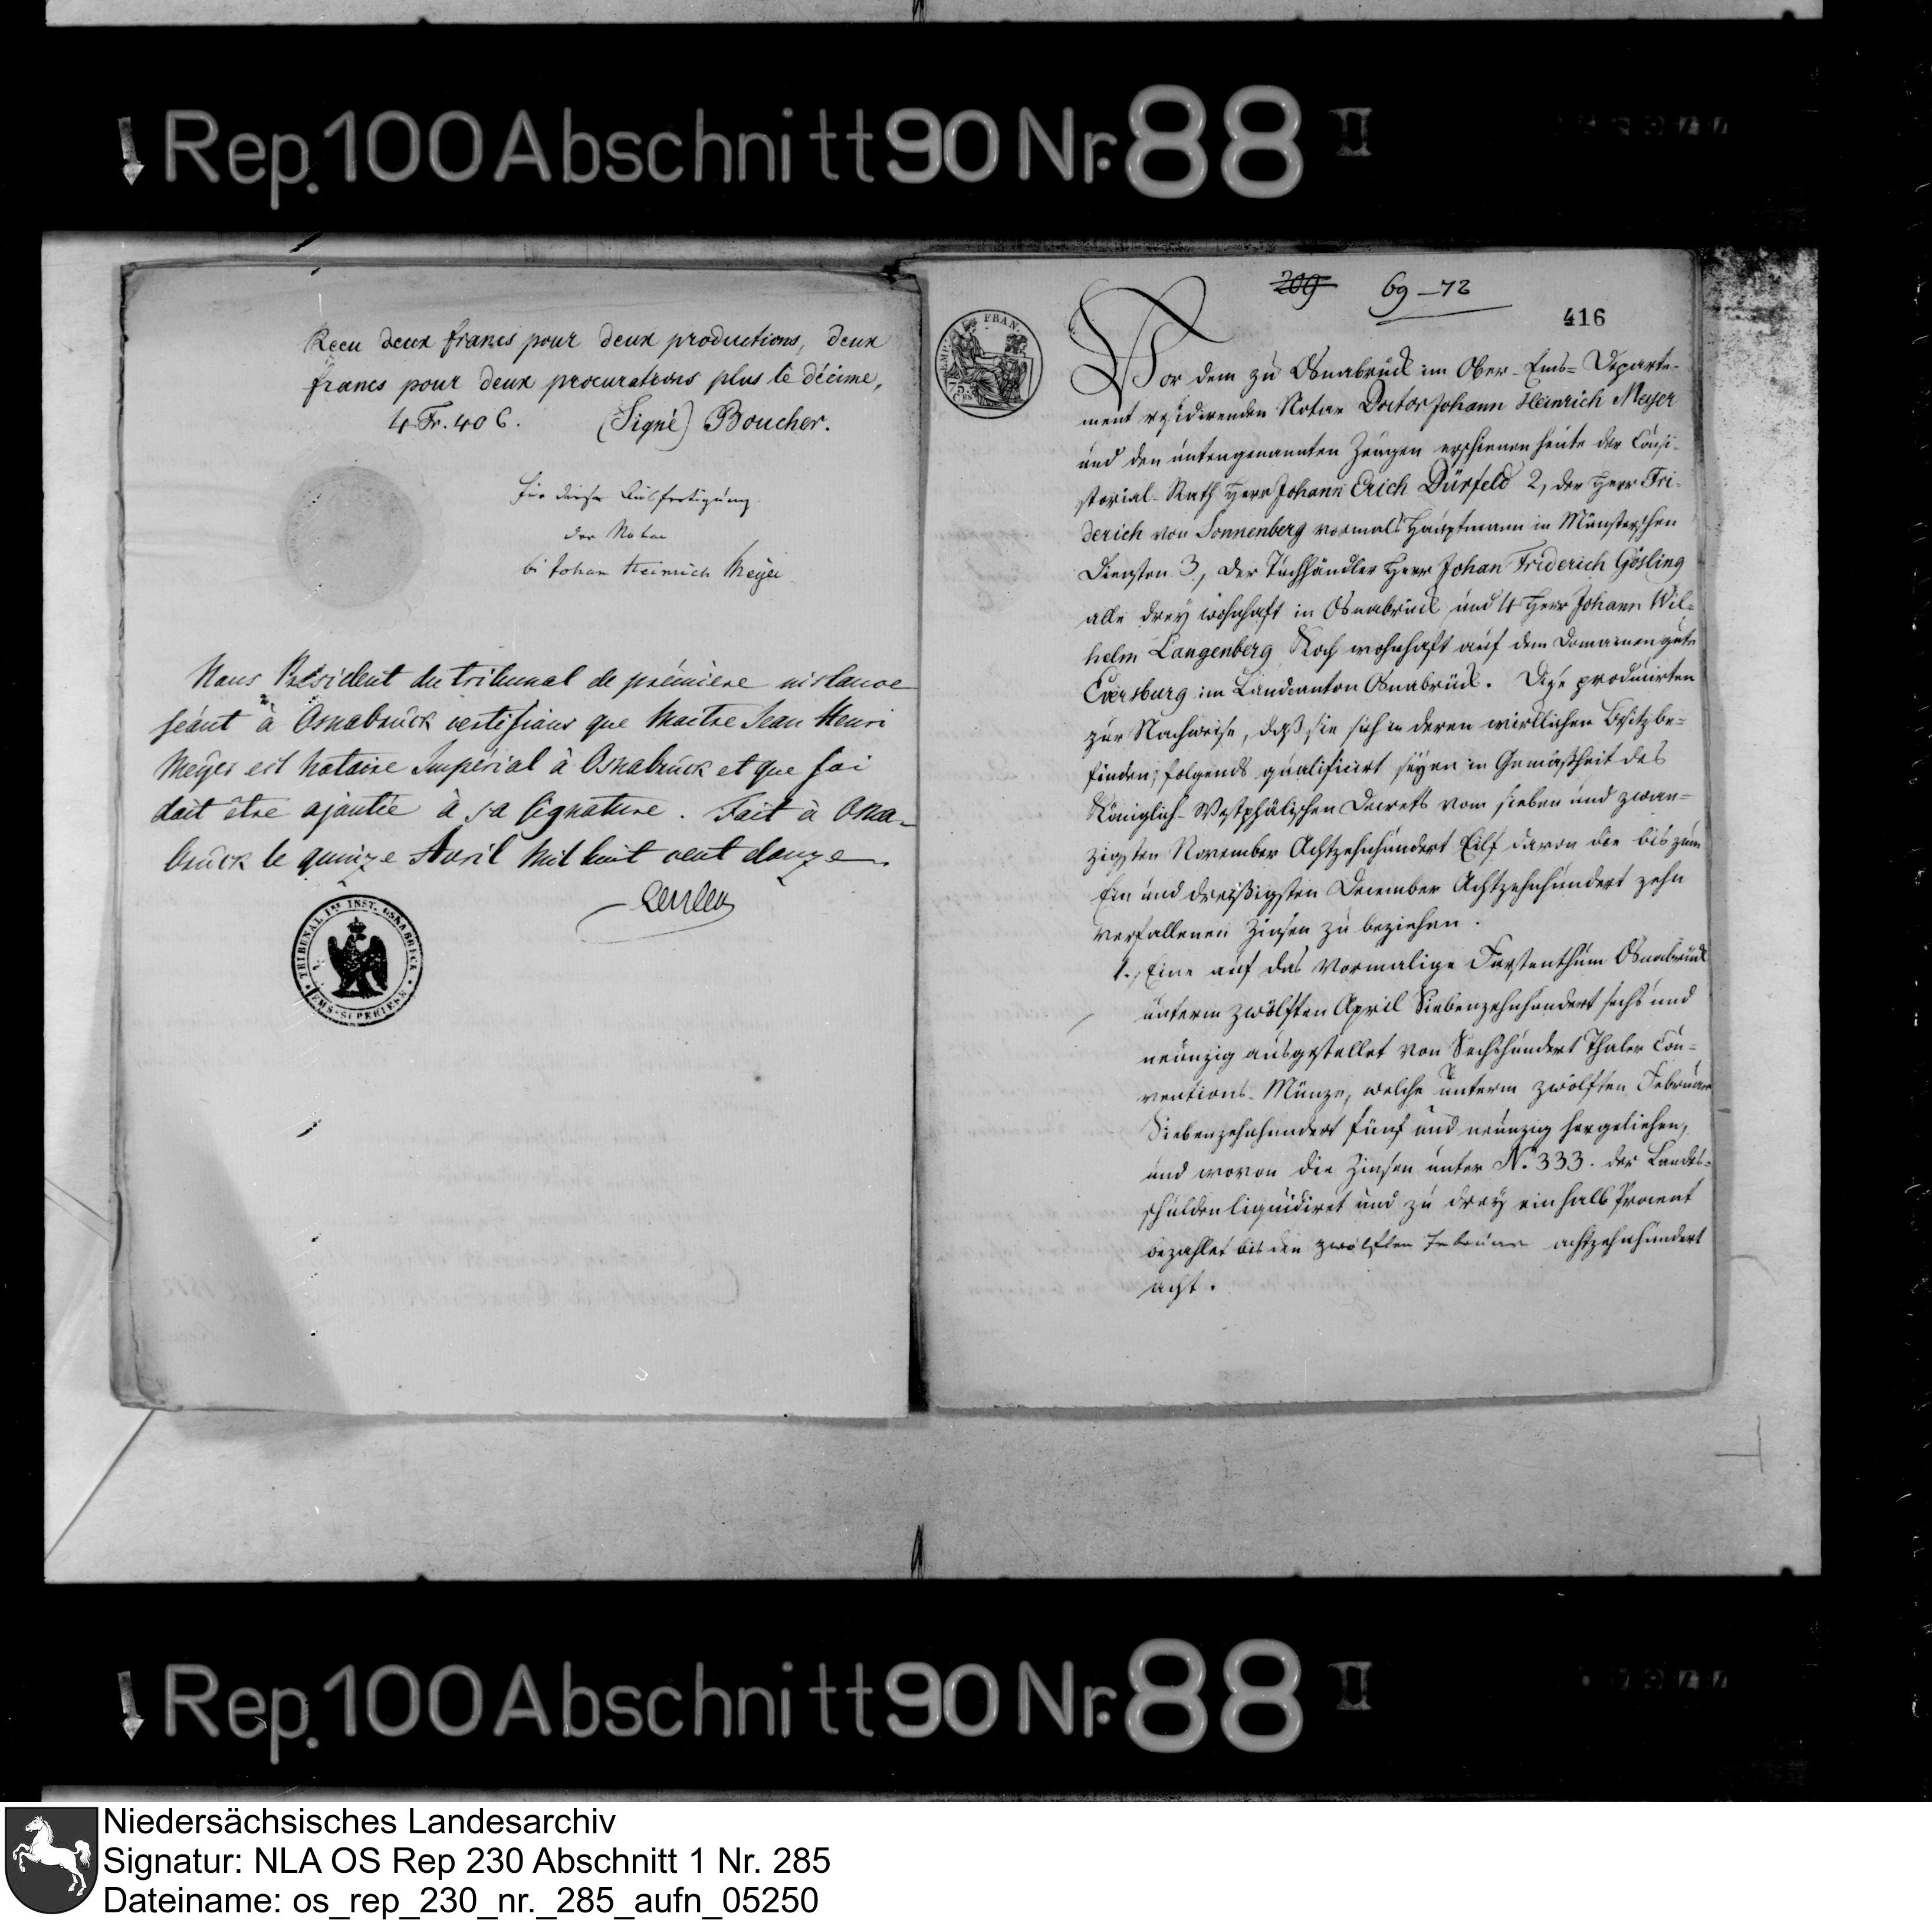 Rep. 100 Abschnitt 90 Nr. 88 II
Recu deux francs pour deux productions, deux
francs pour deux procurations plus le décime,
4 Fr. 40 C. (Signé) Boucher.
Für diese Ausfertigung
der Notar
Johan Heinrich Meyer
Nous Président du tribunal de prémière instance
séant à Osnabrück certifions que Maitre Jean Henri
Meÿer est Notaire Impérial à Osnabrück et que foi
doit être ajoutée à sa signature. Fait à Osna-
brück le quinze Avril mil huit cent douze
TRIBUNAL 1RE INST. OSNABRUCK
EMS-SUPERIEUR
209 69-72
416
EMP. FRAN.
75
CES
Vor dem zu Osnabrück im Ober-Ems-Departe-
ment residirenden Notar Doctor Johann Heinrich Meyer
und den untengenannten Zeugen erschienen heute der Consi-
storial-Rath Herr Johann Erich Dürfeld 2, der Herr Fri-
derich von Sonnenberg vormals Hauptmann in Münsterschen
Diensten 3, der Tuchhändler Herr Johan Friderich Gösling
alle dreÿ wohnhaft in Osnabrück und 4 Herr Johann Wil-
helm Langenberg Koch wohnhaft auf dem Domainengute
Eversburg im Landcanton Osnabrück. Diese producirten
zur Nachweise, daß sie sich in deren wirklichen Besitz be-
finden; folgends qualificirt seÿen in Gemäßheit des
Königlich-Westphälischen Decrets vom sieben und zwan-
zigsten November Achtzehnhundert Eilf davon die bis zum
Ein und dreißigsten December Achtzehnhundert zehn
verfallenen Zinsen zu beziehen.
1., Eine auf das vormalige Fürstenthum Osnabrück
unterm zwölften April Siebenzehnhundert sechs und
neunzig ausgestellet von Sechshundert Thaler Con-
ventions-Münze, welche unterm zwölften Februar
Siebenzehnhundert fünf und neunzig hergeliehen,
und wovon die Zinsen unter No. 333. der Landes-
schulden liquidiret und zu dreÿ ein halb Procent
bezahlet bis den zwölften Februar achtzehnhundert
acht.
Rep. 100 Abschnitt 90 Nr. 88 II
Niedersächsisches Landesarchiv
Signatur: NLA OS Rep 230 Abschnitt 1 Nr. 285
Dateiname: os_rep_230_nr._285_aufn_05250